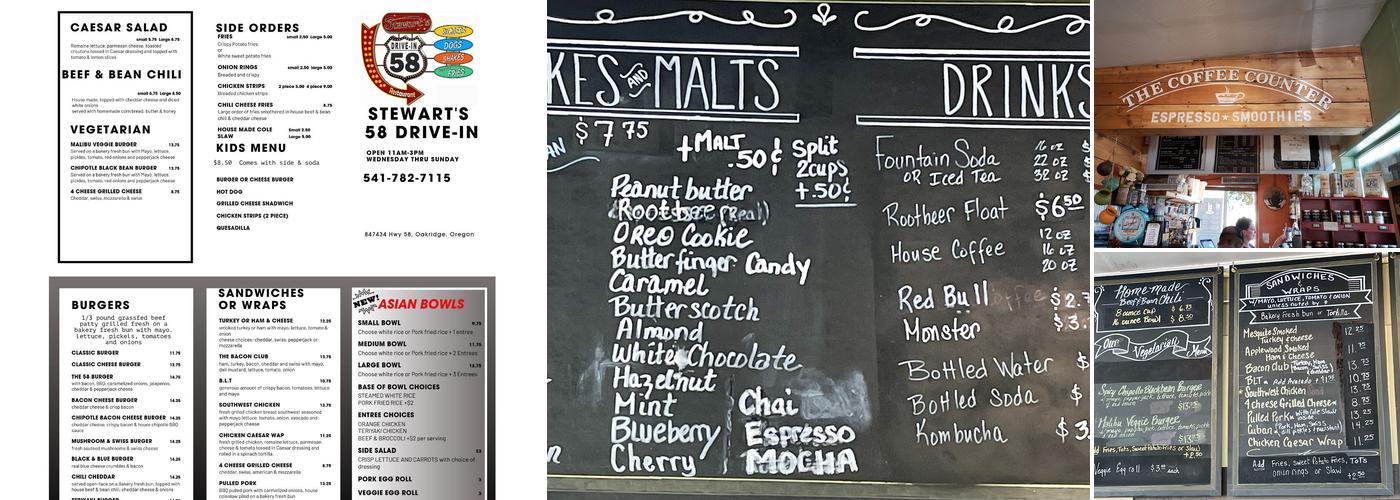 CAESAR SALAD
small 5.75 Large 8.75
Romaine lettuce, parmesan cheese, toasted
croutons tossed in Caesar dressing and topped with
tomato & lemon slices
BEEF & BEAN CHILI
small 6.75 Large 8.50
House made, topped with cheddar cheese and diced
white onions
served with homemade cornbread, butter & honey
VEGETARIAN
MALIBU VEGGIE BURGER 13.75
Served on a bakery fresh bun with Mayo, lettuce,
pickles, tomato, red onions and pepperjack cheese
CHIPOTLE BLACK BEAN BURGER 13.75
Served on a bakery fresh bun with Mayo, lettuce,
pickles, tomato, red onions and pepperjack cheese
4 CHEESE GRILLED CHEESE 8.75
Cheddar, swiss, mozzarella & swiss
SIDE ORDERS
FRIES small 2.50 Large 5.00
Crispy Potato fries
or
White sweet potato fries
ONION RINGS small 2.50 large 5.00
Breaded and crispy
CHICKEN STRIPS 2 piece 5.00 4 piece 9.00
Breaded chicken strips
CHILI CHEESE FRIES 8.75
Large order of fries smothered in house beef & bean
chili & cheddar cheese
HOUSE MADE COLE SLAW Small 2.50
Large 5.00
KIDS MENU
$8.50 Comes with side & soda
BURGER OR CHEESE BURGER
HOT DOG
GRILLED CHEESE SNADWICH
CHICKEN STRIPS (2 PIECE)
QUESADILLA
Stewart's
DRIVE-IN
58
Restaurant
BURGERS
DOGS
SHAKES
FRIES
STEWART'S
58 DRIVE-IN
OPEN 11AM-3PM
WEDNESDAY THRU SUNDAY
541-782-7115
847434 Hwy 58, Oakridge, Oregon
BURGERS
1/3 pound grassfed beef
patty grilled fresh on a
bakery fresh bun with mayo.
lettuce, pickels, tomatoes
and onions
CLASSIC BURGER 11.75
CLASSIC CHEESE BURGER 13.75
THE 58 BURGER 14.75
with bacon, BBQ, caramelized onions, jalapenos,
cheddar & pepperjack cheese
BACON CHEESE BURGER 14.25
cheddar cheese & crisp bacon
CHIPOTLE BACON CHEESE BURGER 14.25
cheddar cheese, crispy bacon & house chipotle BBQ
sauce
MUSHROOM & SWISS BURGER 14.25
fresh sauteed mushrooms & swiss cheese
BLACK & BLUE BURGER 14.25
real blue cheese crumbles & bacon
CHILI CHEDDAR 14.25
served open-face on a Bakery fresh bun, topped with
house beef & bean chili, cheddar cheese & onions
TERIYAKI BURGER
SANDWICHES
OR WRAPS
TURKEY OR HAM & CHEESE 12.25
smoked turkey or ham with mayo, lettuce, tomato &
onion
cheese choices: cheddar, swiss, pepperjack or
mozzarella
THE BACON CLUB 13.75
ham, turkey, bacon, cheddar and swiss with mayo,
deli mustard, lettuce, tomato, onion
B.L.T 10.75
generous amount of crispy bacon, tomatoes, lettuce
and mayo
SOUTHWEST CHICKEN 13.75
fresh grilled chicken breast southwest seasoned
with mayo lettuce, tomato, onion, avocado and
pepperjack cheese
CHICKEN CAESAR WAP 11.25
fresh grilled chicken, romaine lettuce, parmesan
cheese & tomato tossed in Caesar dressing and
rolled in a spinach tortilla.
4 CHEESE GRILLED CHEESE 8.75
cheddar, swiss, american & mozzarella
PULLED PORK 13.25
BBQ pulled pork with carmelized onions, house
coleslaw piled on a bakery fresh bun
NEW!
ASIAN BOWLS
SMALL BOWL 9.75
Choose white rice or Pork fried rice + 1 entree
MEDIUM BOWL 11.75
Choose white rice or Pork fried rice + 2 Entrees
LARGE BOWL 13.75
Choose white rice or Pork fried rice + 3 Entrees
BASE OF BOWL CHOICES
STEAMED WHITE RICE
PORK FRIED RICE +$2
ENTREE CHOICES
ORANGE CHICKEN
TERIYAKI CHICKEN
BEEF & BROCCOLI +$2 per serving
SIDE SALAD $3
CRISP LETTUCE AND CARROTS with choice of
dressing
PORK EGG ROLL 3
VEGGIE EGG ROLL 3
KES AND MALTS
$7 75
+MALT .50¢
Split
2cups
+.50¢
Peanut butter
Rootbeer (Real)
OREO Cookie
Butterfinger Candy
Caramel
Butterscotch
Almond
White Chocolate
Hazelnut
Mint
Blueberry
Cherry
Chai
Espresso
MOCHA
DRINKS
Fountain Soda
OR Iced Tea
16 oz $
22 oz $
32 oz $
Rootbeer Float $6 50
House Coffee
12 oz
16 oz
20 oz
Red Bull $2.7
Monster $3.
Bottled Water $
Bottled Soda $
Kombucha $3.
THE COFFEE COUNTER
ESPRESSO ★ SMOOTHIES
Homemade
Beef & Bean Chili
8 ounce Cup $6.75
16 ounce Bowl $8.50
Our Vegetarian Menu
Spicy Chipotle Blackbean Burger
$13.75
Malibu Veggie Burger
$13.75
Add Fries, Tots, Sweet Potato Fries or Slaw
+2.50
Veggie Egg roll $3.00 each
SANDWICHES
& WRAPS
W/MAYO, LETTUCE, TOMATO & ONION
unless noted by *
Bakery fresh bun or Tortilla
Mesquite Smoked
Turkey & cheese 12.25
Applewood Smoked
Ham & Cheese 11.75
Bacon Club 13.75
BLT Add Avocado + $1.50 10.75
Southwest Chicken 13.75
4 Cheese Grilled Cheese 8.75
Pulled Pork with Cole Slaw inside 13.25
Cuban 14.25
Chicken Caesar Wrap 11.25
Add Fries, Sweet Potato Fries, ToTs
onion rings or Slaw
+2.50